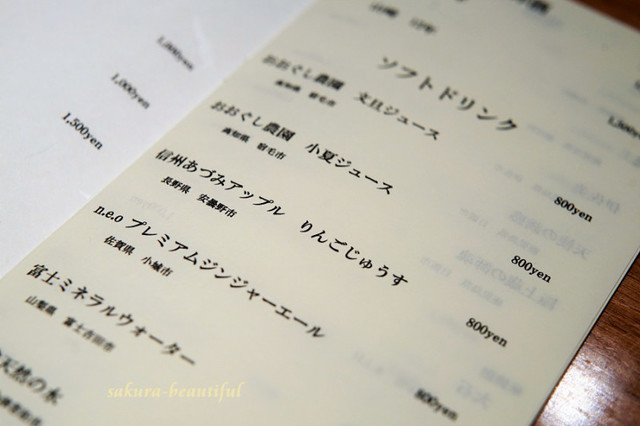 1,000yen
1,000yen
1,500yen
ソフトドリンク
おおぐし農園 文旦ジュース
高知県 宿毛市
800yen
おおぐし農園 小夏ジュース
高知県 宿毛市
800yen
信州あづみアップル りんごじゅうす
長野県 安曇野市
800yen
n.e.o プレミアムジンジャーエール
佐賀県 小城市
800yen
富士ミネラルウォーター
山梨県 富士吉田市
天然の水
sakura-beautiful